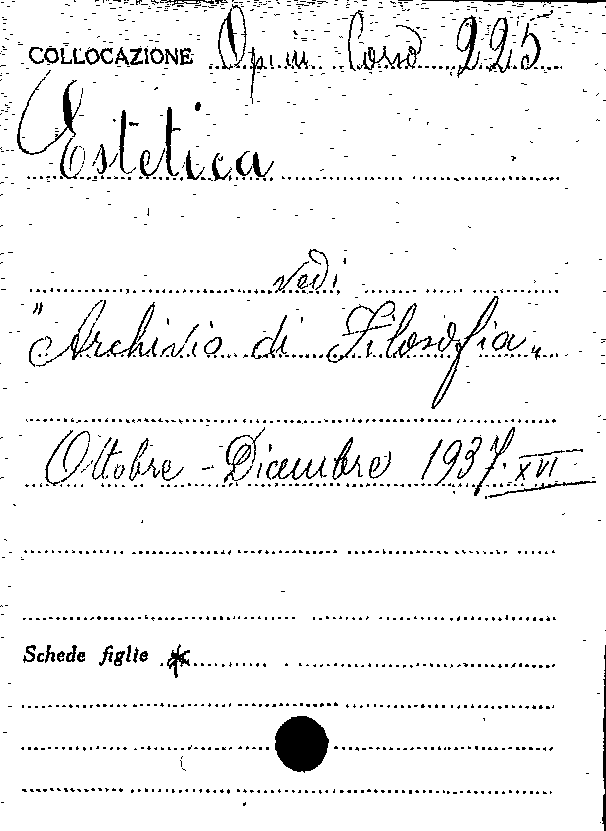 COLLOCAZIONE Op. in Corso 225
Estetica
vedi
"Archivio di Filosofia"
Ottobre - Dicembre 1937. XVI
Schede figlie *